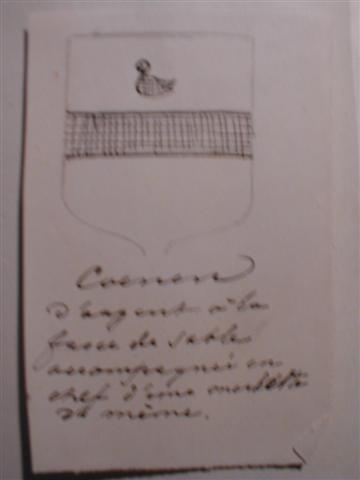 Coenen
d'argent à la
fasce de sable
accompagnée en
chef d'une merlette
de même.